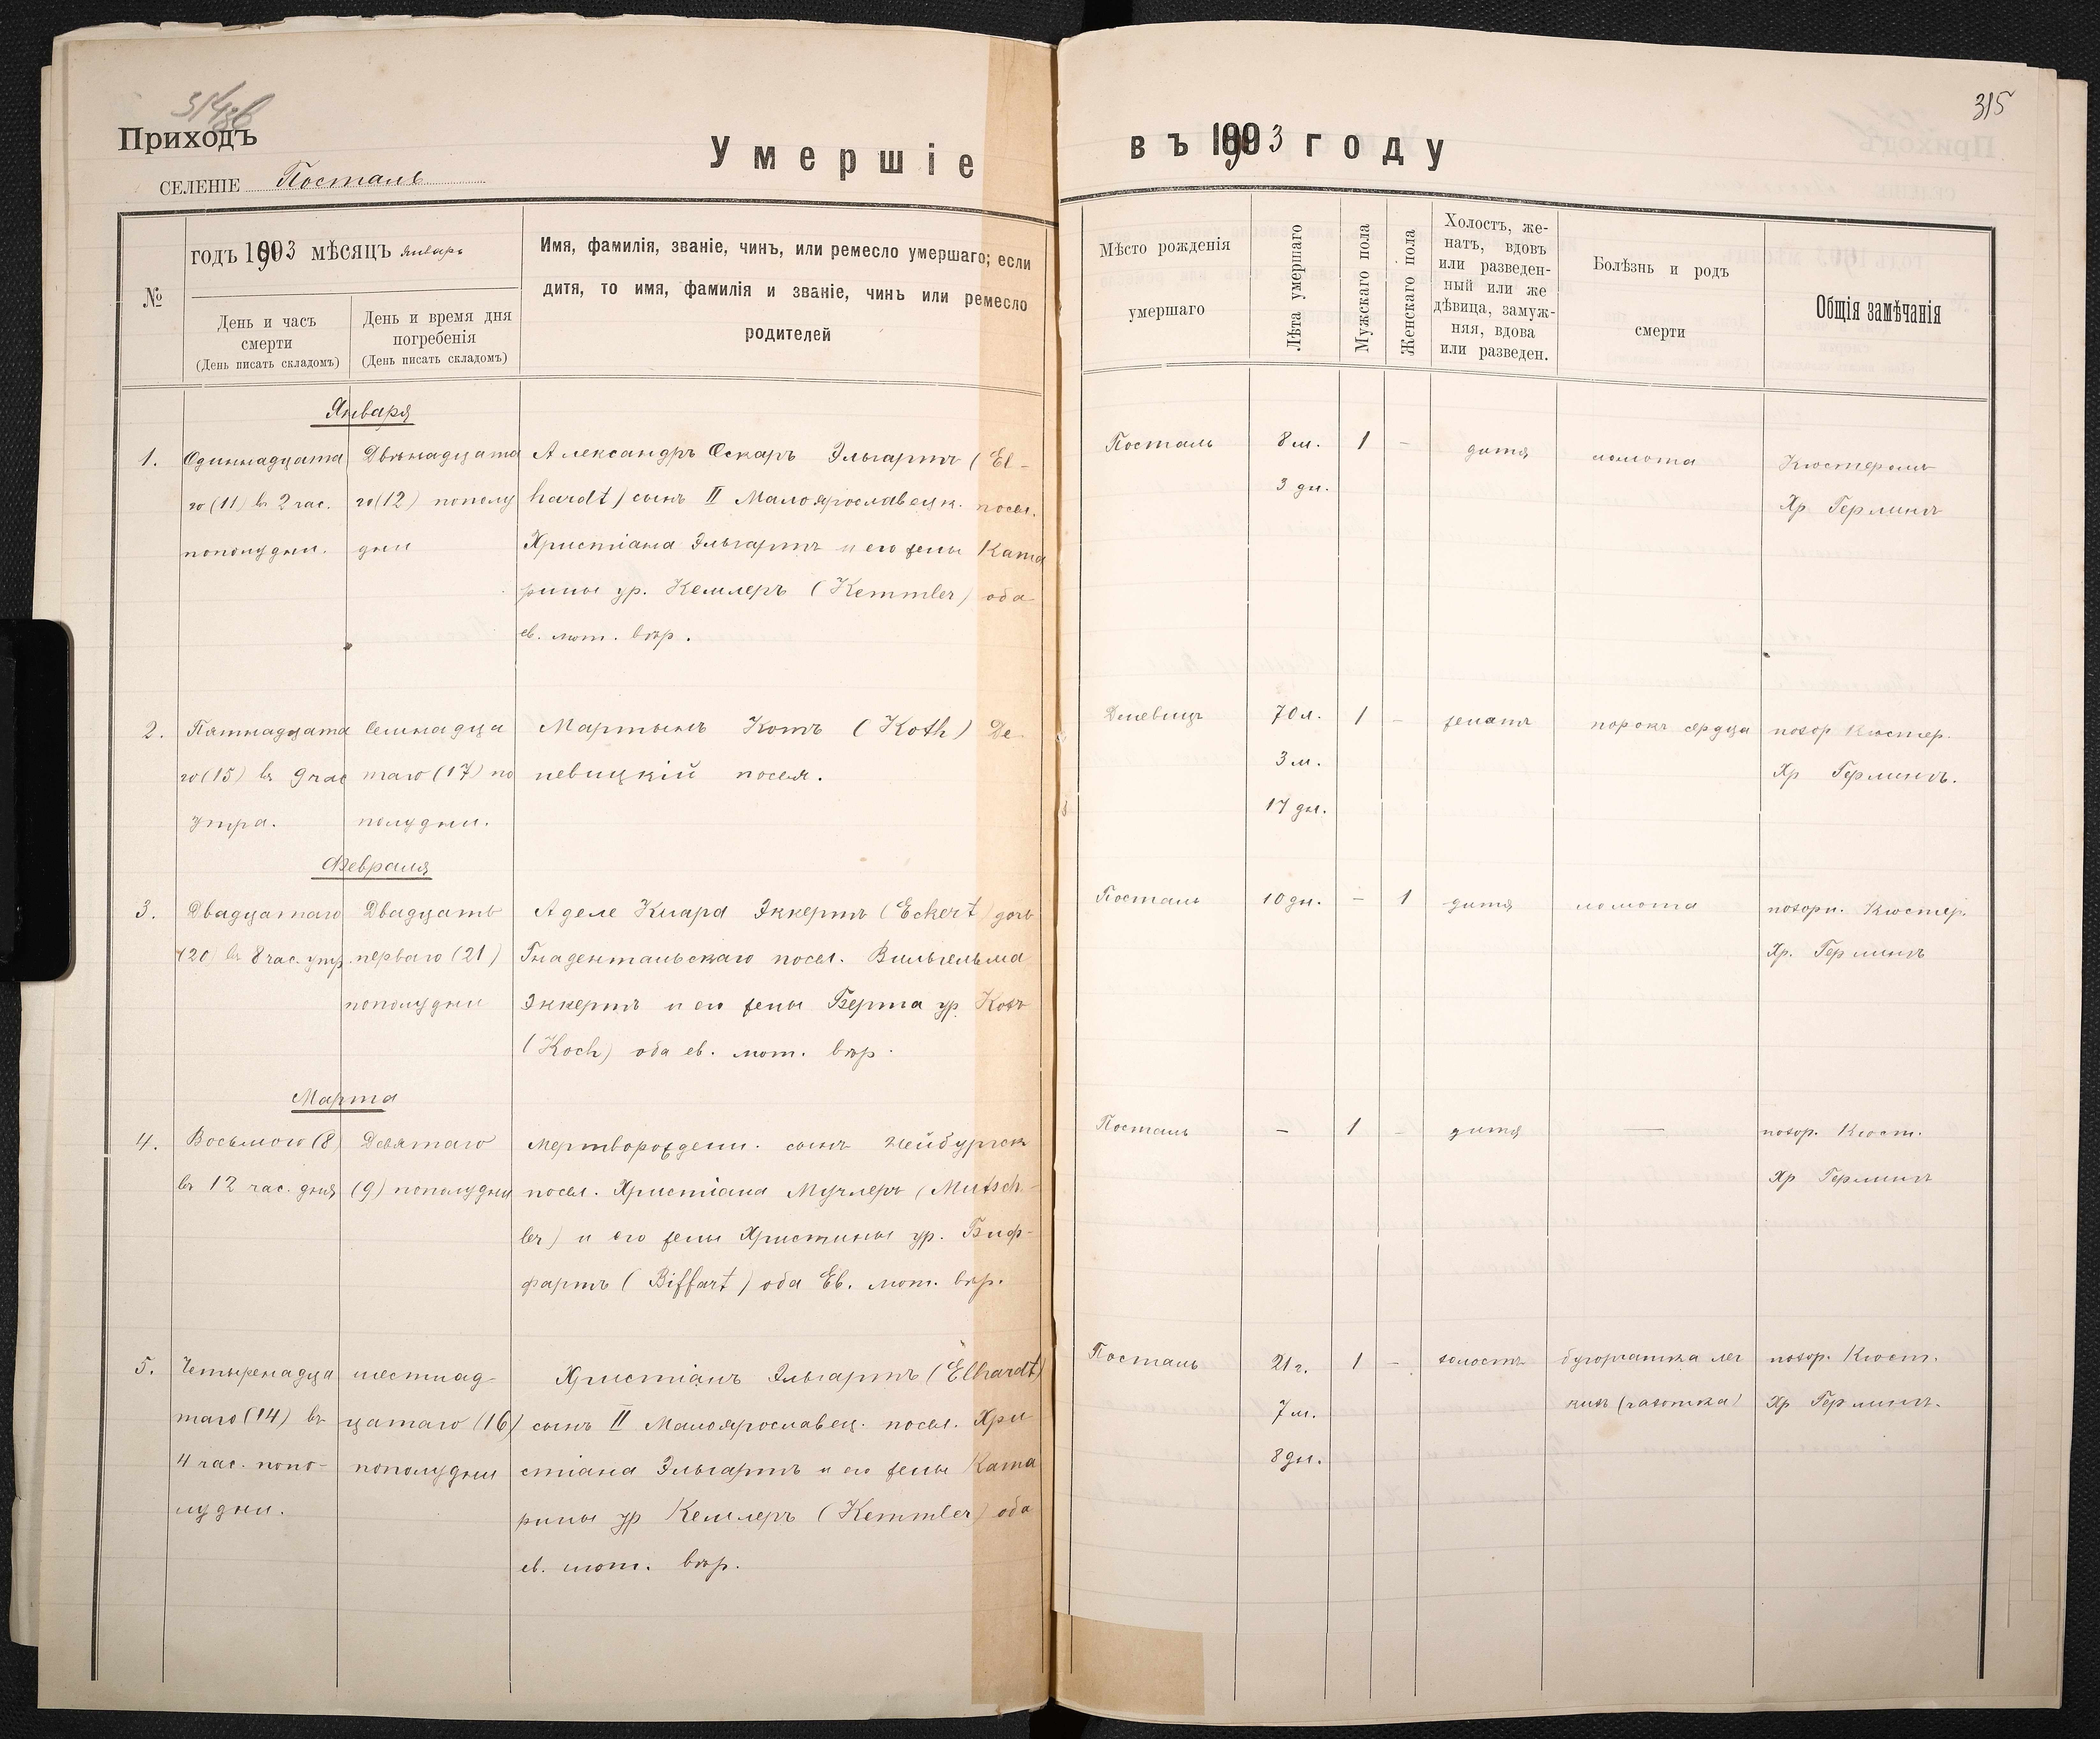 315
Приходъ
Умершіе
въ 1903 году
СЕЛЕНІЕ Посталь
№
годъ 1903 мѣсяцъ январь
День и часъ
смерти
(День писать складомъ)
День и время дня
погребенія
(День писать складомъ)
Имя, фамилія, званіе, чинъ, или ремесло умершаго; если
дитя, то имя, фамилія и званіе, чинъ или ремесло
родителей
Мѣсто рожденія
умершаго
Лѣта умершаго
Мужскаго пола
Женскаго пола
Холостъ, же-
натъ, вдовъ
или разведен-
ный или же
дѣвица, замуж-
няя, вдова
или разведен.
Болѣзнь и родъ
смерти
Общія замѣчанія
Января
1.
Одиннадцата
го (11) въ 2 час.
пополудни.
Двѣнадцата
го (12) пополу
дни
Александръ Оскаръ Эльгартъ (El-
hardt) сынъ II Малоярославецк. посел.
Христіана Эльгартъ и его жены Ката
рины ур. Кемлеръ (Kemmler) оба
ев. лют. вѣр.
Посталь
8 м.
3 дн.
1
-
дитя
ломота
Кюстеромъ
Хр Герлингъ
2.
Пятнадцата
го (15) въ 9 час
утра.
Семнадца
таго (17) по
полудни.
Мартынъ Котъ (Koth) Де-
невицкій посел.
Деневицъ
70 л.
3 м.
17 дн.
1
-
женатъ
порокъ сердца
похор Кюстер.
Хр Герлингъ.
Февраля
3.
Двадцатаго
(20) въ 8 час. утр.
Двадцать
перваго (21)
пополудни
Аделе Клара Эккертъ (Eckert) дочь
Гнадентальскаго посел. Вильгельма
Эккертъ и его жены Берта ур. Кохъ
(Koch) оба ев. лют. вѣр.
Посталь
10 дн.
-
1
дитя
ломота
похорн. Кюстер.
Хр. Герлингъ
Марта
4.
Восьмого (8)
въ 12 час. дня
Девятаго
(9) пополудни
Мертворожден. сынъ Нейбургск
посел. Христіана Мучлеръ (Mutsch-
ler) и его жены Христины ур. Биф-
фартъ (Biffart) оба Ев. лют. вѣр.
Посталь
-
1
-
дитя
—
похор. Кюст.
Хр Герлингъ
5.
Четыренадца
таго (14) въ
4 час. попо-
лудни.
шестнад
цатаго (16)
пополудни
Христіанъ Эльгартъ (Elhardt)
сынъ II Малоярославец. посел. Хри
стіана Эльгартъ и его жены Ката
рины ур Кемлеръ (Kemmler) оба
ев. лют. вѣр.
Посталь
21 г.
7 м.
8 дн.
1
-
холостъ
бугорчатка лег
кихъ (чахотка)
похор. Кюст.
Хр Герлингъ.